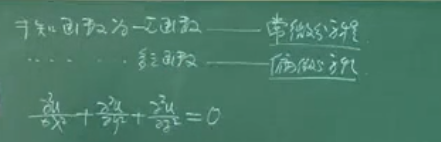 未知函数为一元函数 —— 常微分方程
‥‥‥ 多元函数 —— 偏微分方程
∂²u/∂x² + ∂²u/∂y² + ∂²u/∂z² = 0